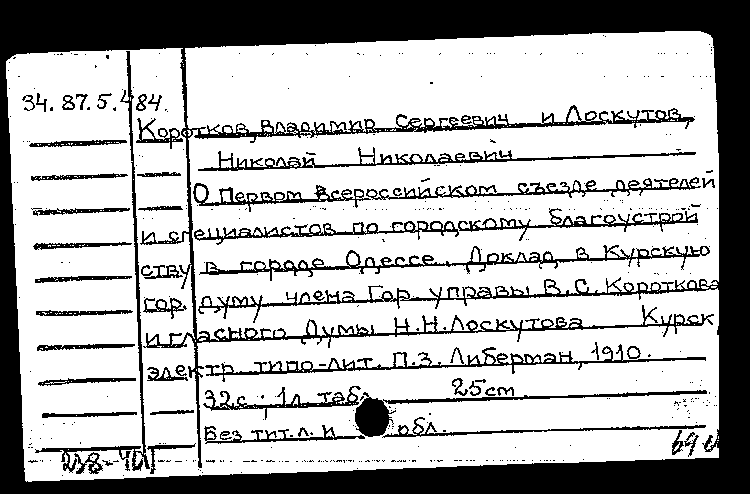 34.87.5.484.
Коротков, Владимир Сергеевич и Лоскутов,
Николай Николаевич
О Первом Всероссийском съезде деятелей
и специалистов по городскому благоустрой
ству в городе Одессе. Доклад в Курскую
гор. думу члена Гор. управы В.С. Короткова
и гласного Думы Н.Н. Лоскутова. Курск,
электр. типо-лит. П.З. Либерман, 1910.
32с.; 1л. табл. 25cm
Без тит.л. и обл.